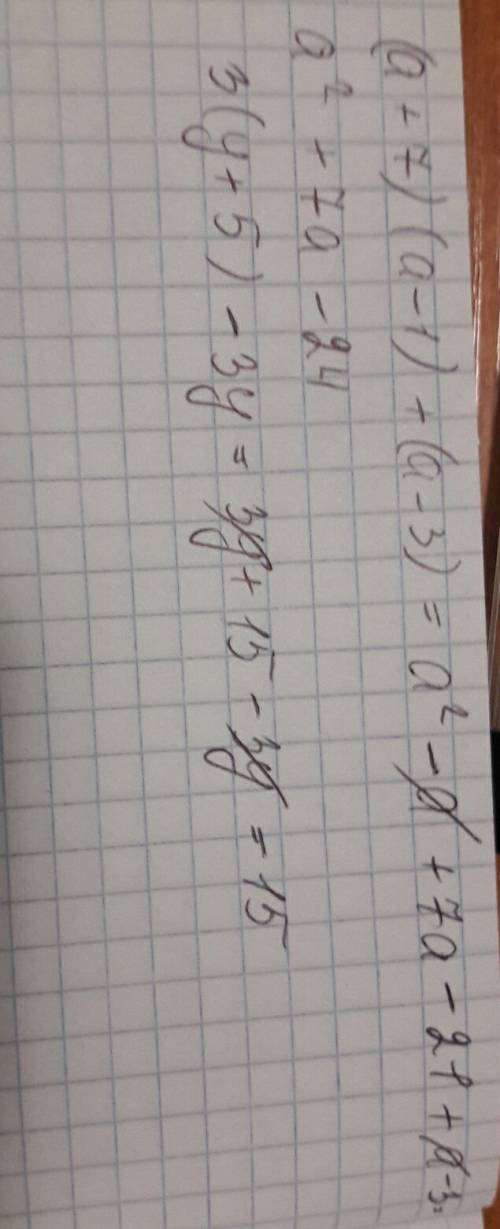 (a+7)(a-1)+(a-3)=a²-a+7a-21+a-3=
a²+7a-24
3(y+5)-3y=3y+15-3y=15